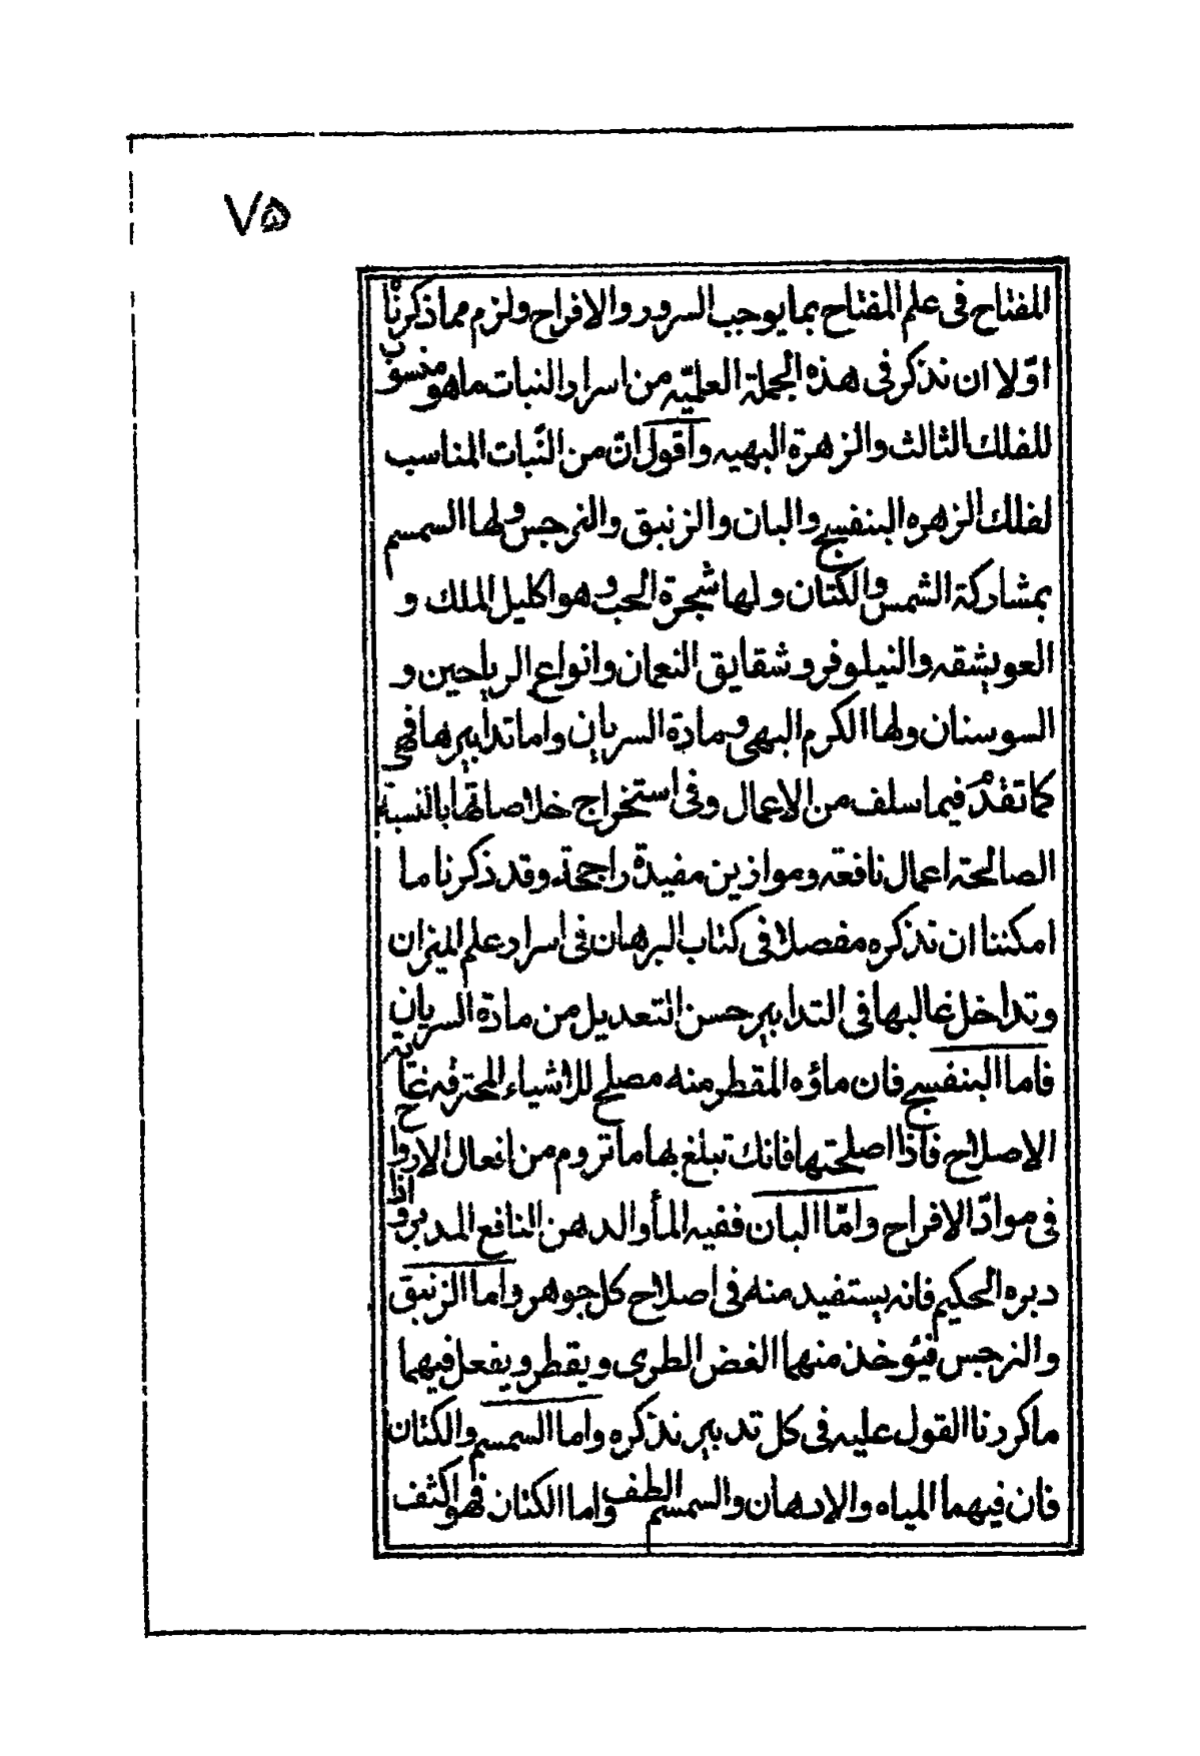 ٧۵
المفتاح فى علم المفتاح بما يوجب السرور والافراح ولزم مما ذكرنا
اوّلا ان نذكر فى هذه الجملة العلميّه من اسرار النبات ما هو منسوب
للفلك الثالث والزهرة البهيه وأقول انّ من النّبات المناسب
لفلك الزهره البنفسج والبان والزنبق والنرجس ولها السمسم
بمشاركة الشمس والكتان ولها شجرة الحب وهو اكليل الملك و
العويشقه والنيلوفر وشقايق النعمان وانواع الرياحين و
السوسنان ولها الكرم البهى ومادة السريان واما تدابيرها فهى
كما تقدّم فيما سلف من الاعمال وفى استخراج خلاصاتها بالنسبة
الصالحة اعمال نافعة وموازين مفيدة راجحة وقد ذكرنا ما
امكننا ان نذكره مفصلا فى كتاب البرهان فى اسرار علم الميزان
وتداخل غالبها فى التدابير حسن التعديل من مادة السريان
فاما البنفسج فان ماؤه المقطر منه مصلح للاشياء المحترفه غاية
الاصلاح فاذا اصلحتها فانك تبلغ بها ما تروم من افعال الارواح
فى موادّ الافراح وامّا البان ففيه المأ والدهن النافع المدبر واذا
دبره الحكيم فانه يستفيد منه فى اصلاح كل جوهر واما الزنبق
والنرجس فيؤخذ منهما الغض الطرى ويقطر ويفعل فيهما
ما كررنا القول عليه فى كل تدبير نذكره واما السمسم والكتان
فان فيهما المياه والادهان والسمسم الطف واما الكتان فهو اكثف